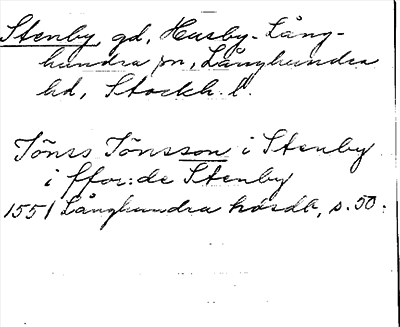 Stenby, gd, Husby-Lång-
hundra sn, Långhundra
hd, Stockh. l.
Töns Tönsson i Stenby
i ffor:de Stenby
1551 Långhundra härdb, s. 50.